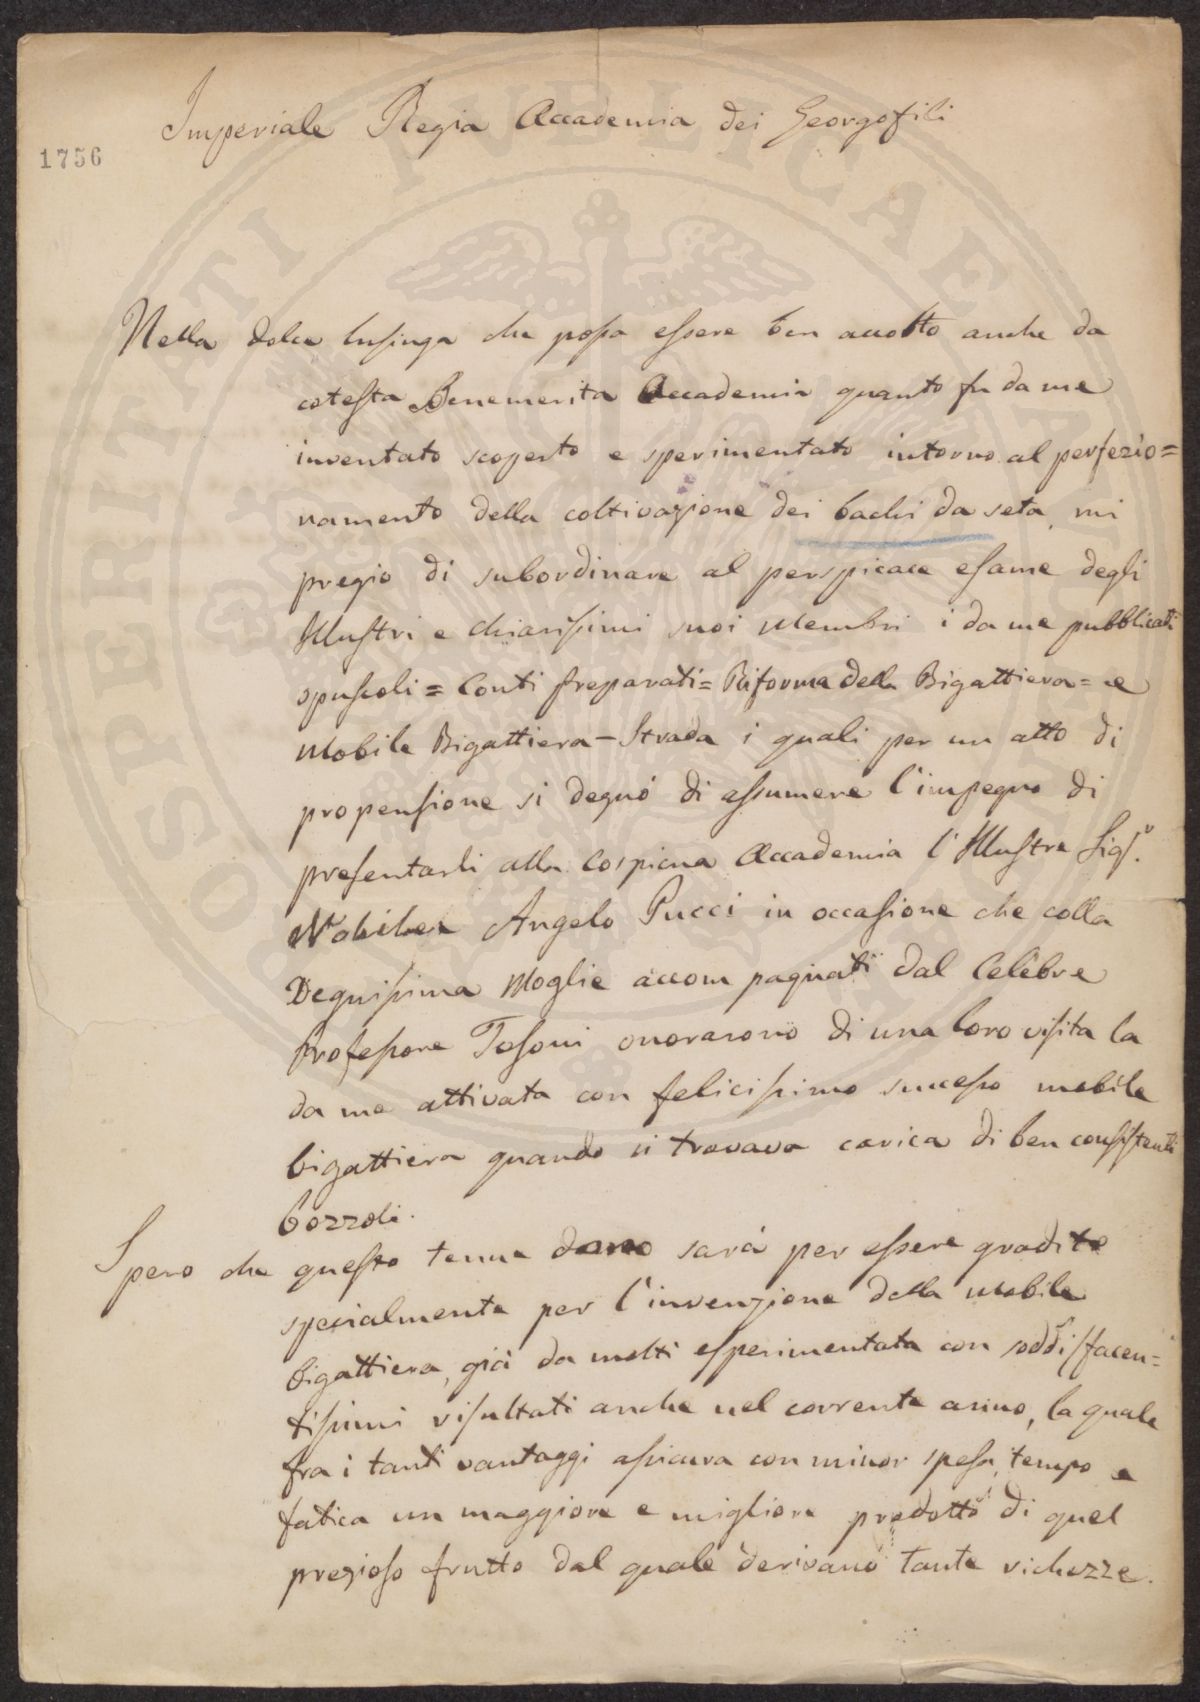 Imperiale Regia Accademia dei Georgofili
1756
Nella dolce lusinga che possa essere ben accolto anche da
cotesta Benemerita Accademia quanto fu da me
inventato scoperto e sperimentato intorno al perfezio=
namento della coltivazione dei bachi da seta, mi
pregio di subordinare al perspicace esame degli
Illustri e chiarissimi suoi Membri i da me pubblicati
opuscoli = Conti preparati = Riforma della Bigattiera = e
Mobile Bigattiera – Strada i quali per un atto di
propensione si degnò di assumere l'impegno di
presentarli alla Cospicua Accademia l'Illustre Sigr.
Nobile Angelo Pucci in occasione che colla
Degnissima Moglie accompagnati dal Celebre
Professore Tosoni onorarono di una loro visita la
da me attivata con felicissimo successo mobile
bigattiera quando si trovava carica di ben consistenti
bozzoli.
Spero che questo tenue dono sarà per essere gradito
specialmente per l'invenzione della Mobile
bigattiera, già da molti esperimentata con soddisfacen=
tissimi risultati anche nel corrente anno, la quale
fra i tanti vantaggi assicura con minor spesa, tempo e
fatica un maggiore e migliore prodotto di quel
prezioso frutto dal quale derivano tante richezze.